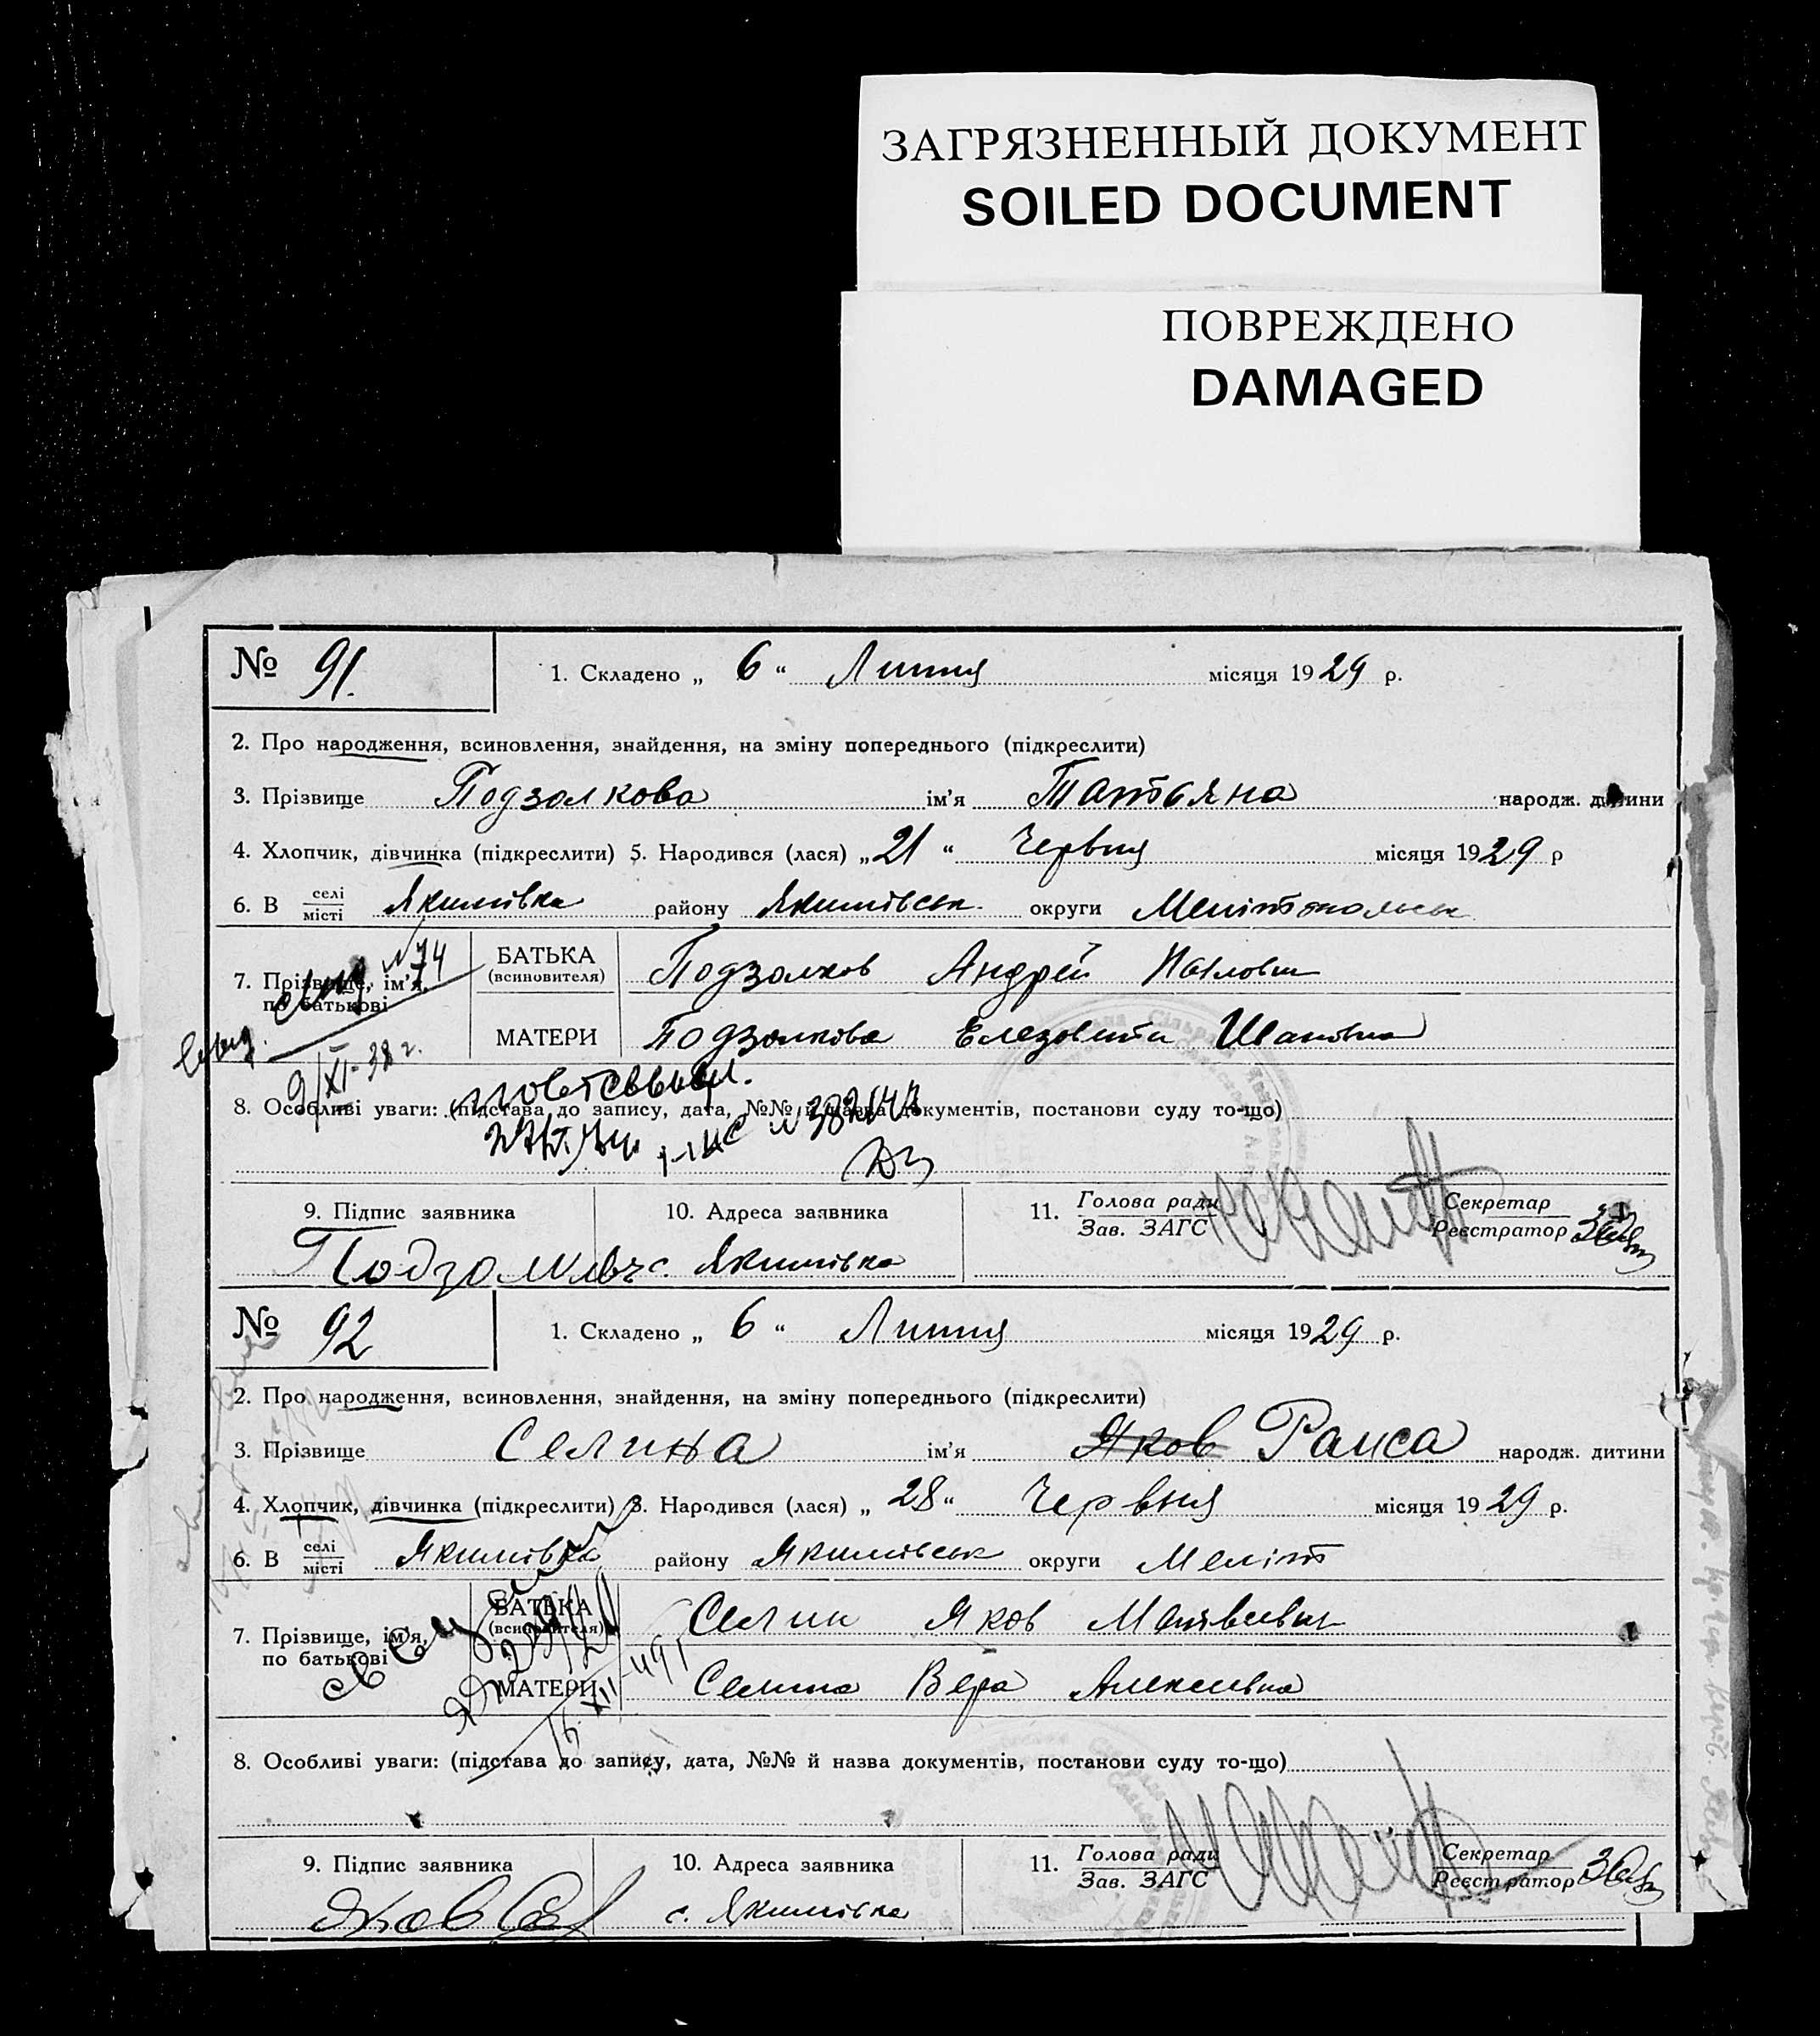 ЗАГРЯЗНЕННЫЙ ДОКУМЕНТ
SOILED DOCUMENT
ПОВРЕЖДЕНО
DAMAGED
№ 91. 1. Складено „ 6 “ Липня місяця 1929 р.
2. Про народження, всиновлення, знайдення, на зміну попереднього (підкреслити)
3. Прізвище Подзолкова ім’я Татьяна народж. дитини
4. Хлопчик, дівчинка (підкреслити) 5. Народився (лася) „ 21 “ Червня місяця 1929 р
6. В селі місті Якимівка району Якимівськ. округи Мелітопольськ
7. Прізвище, ім’я, по батькові
БАТЬКА (всиновителя) Подзолков Андрей Павлович
МАТЕРИ Подзолкова Елезовита Ивановна
N 74
9/XI-38 г.
8. Особливі уваги: (підстава до запису, дата, №№ й назва документів, постанови суду то-що)
9. Підпис заявника 10. Адреса заявника 11. Голова ради Зав. ЗАГС Секретар Реєстратор
с. Якимівка
№ 92 1. Складено „ 6 “ Липня місяця 1929 р.
2. Про народження, всиновлення, знайдення, на зміну попереднього (підкреслити)
3. Прізвище Селина ім’я Яков Раиса народж. дитини
4. Хлопчик, дівчинка (підкреслити) 5. Народився (лася) „ 28 “ Червня місяця 1929 р.
6. В селі місті Якимівка району Якимівськ округи Меліт
7. Прізвище, ім’я, по батькові
БАТЬКА (всиновителя) Селин Яков Матвеевич
МАТЕРИ Селина Вера Алексивна
8. Особливі уваги: (підстава до запису, дата, №№ й назва документів, постанови суду то-що)
9. Підпис заявника 10. Адреса заявника 11. Голова ради Зав. ЗАГС Секретар Реєстратор
Яков с. Якимівка